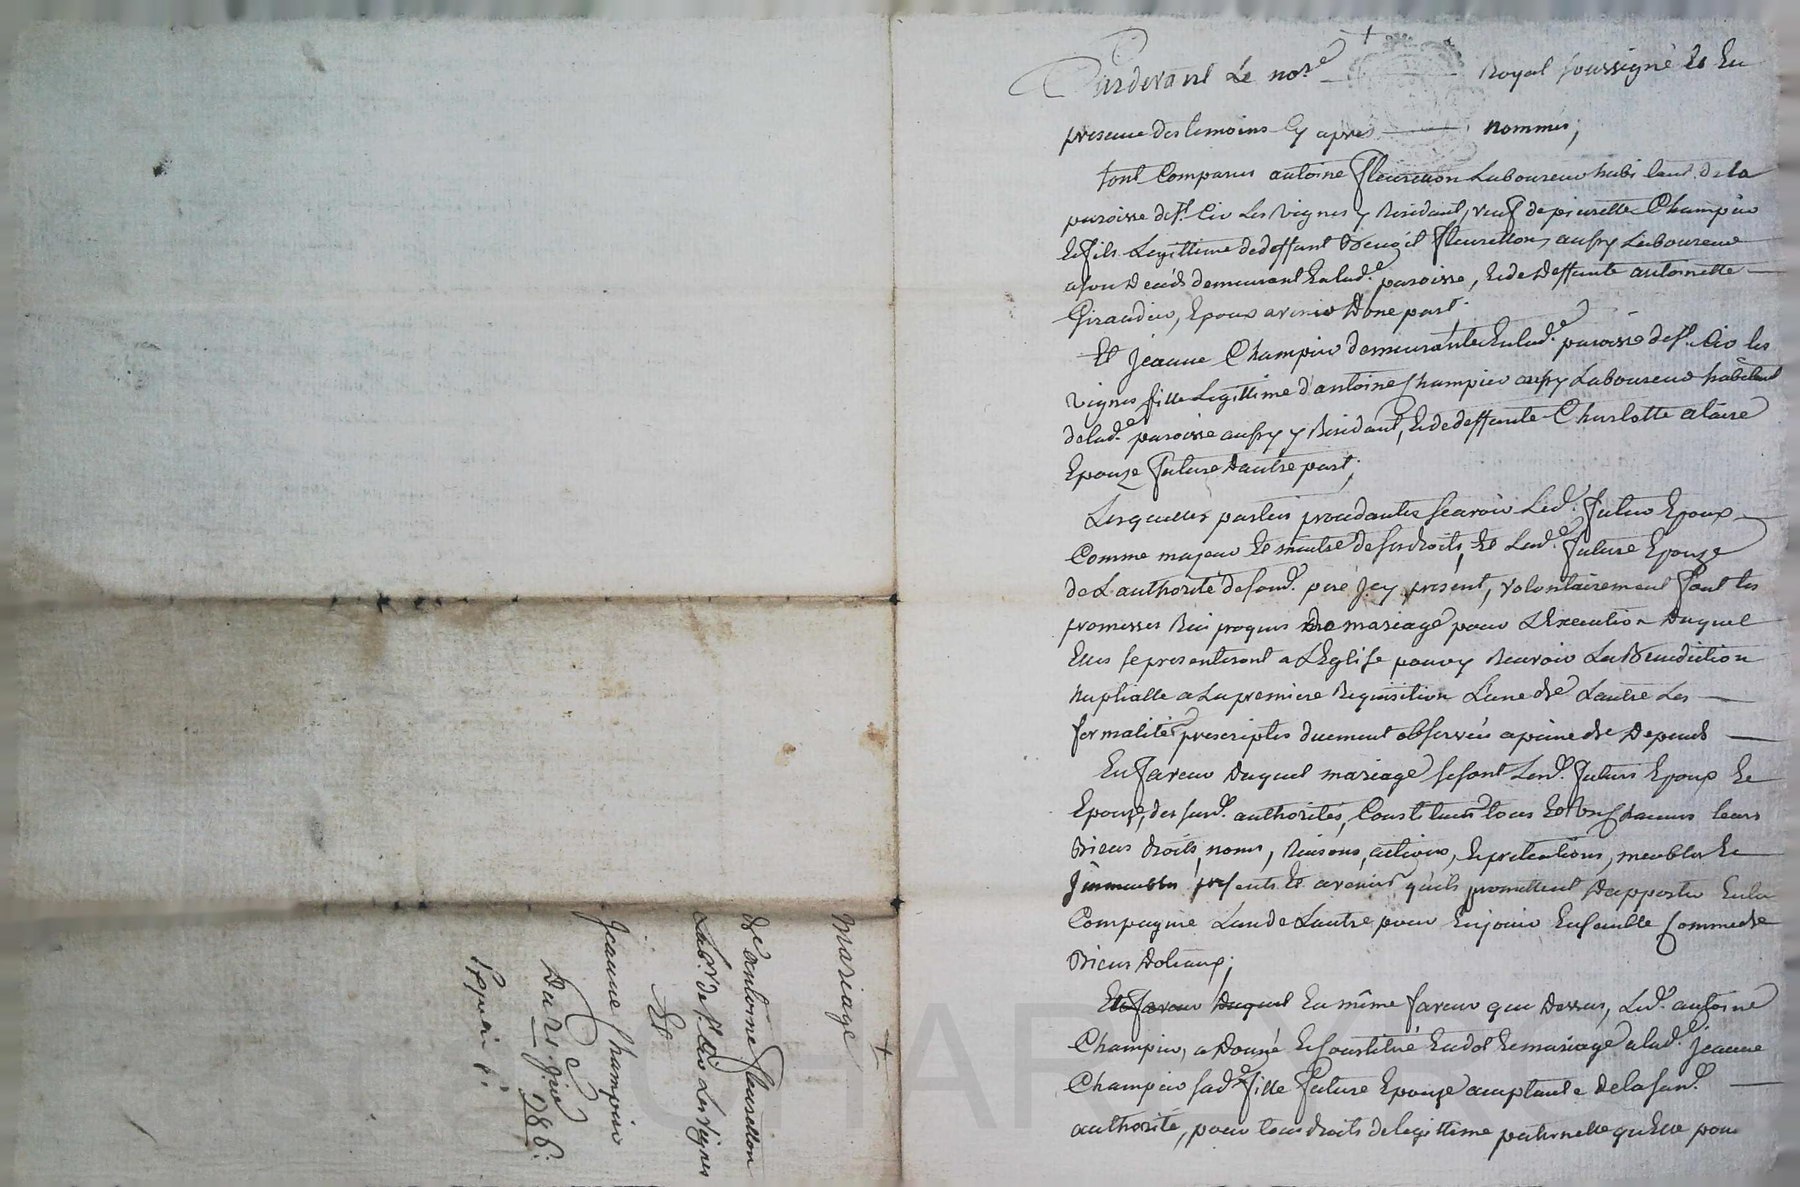 Pardevant Le no.re Royal soussigné Et En
presence des temoins Cy apres nommés;
sont Comparus antoine fleuretton Laboureur habitant de la
paroisse de S.t Cir Les vignes y Residant, veuf de pierrette Champier
Et fils Legittime de deffunt Benoît fleuretton, aussy Laboureur
a son Decéds demeurant En lad.e paroisse, Et de Deffunte antoinette
Giraudier, Epoux avenir D'une part
Et Jeanne Champier demeurante En lad.e paroisse de S.t Cir les
vignes fille Legittime d'antoine Champier aussy Laboureur habitant
de lad.e paroisse aussy y Residant, Et de deffunte Charlotte
Epouze future D'autre part;
Lesquelles parties procedantes scavoir Led. futur Epoux
Comme majeur Et maitre de ses droits, Et Lad.e future Epouze
de L'authorité de sond. pere jcy present, volontairement font les
promesses Reciproques de mariage pour L'Execution Duquel
Elles se presenteront a L'Eglise pour y Recevoir La Benediction
nuptialle a La premiere Requisition L'une de L'autre Les
formalités prescriptes duement observées a peine de Depends
En faveur Duquel mariage se sont Lesd. futurs Epoux Et
Epouze, des susd. authorités, Constitués tous Et Chacuns leurs
Biens droits, noms, Raisons, actions, Et pretentions, meubles Et
Jmmeubles presents Et avenir qu'ils promettent D'apporter En la
Compagnie L'un de L'autre pour En jouir Ensemble Comme de
Biens Dotaux;
En faveur Duquel En même faveur que Dessus, Led. antoine
Champier, a Donné Et Constitué En dot Et mariage a lad.e Jeanne
Champier sad.e fille future Epouze acceptante de la susd.
authorité, pour tous droits de legittime paternelle qu'Elle pour
Mariage
d'antoine fleuretton
Lab.r de S.t Cir Les Vignes
Et
Jeanne Champier
Du 1786.